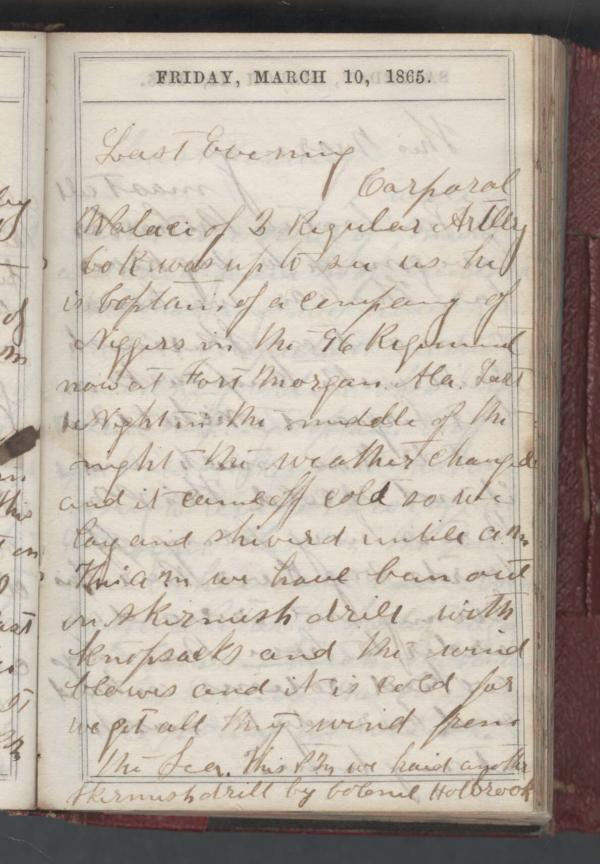 FRIDAY, MARCH 10, 1865.
Last Evening
Corporal
Walace of 2 Regular Artlley
Co K was up to see us he
is Captain of a company of
Niggers in the 96 Regiment
now at Fort Morgan Ala. Last
Night in the middle of the
night the weather changed
and it came off cold so we
lay and shiverd untile a m
This a m we have ban out
on skirmish drill with
knapsacks and the wind
blows and it is cold for
we get all the wind from
the Sea. This P M we haid another
skirmish drill by Colonel Holbrook